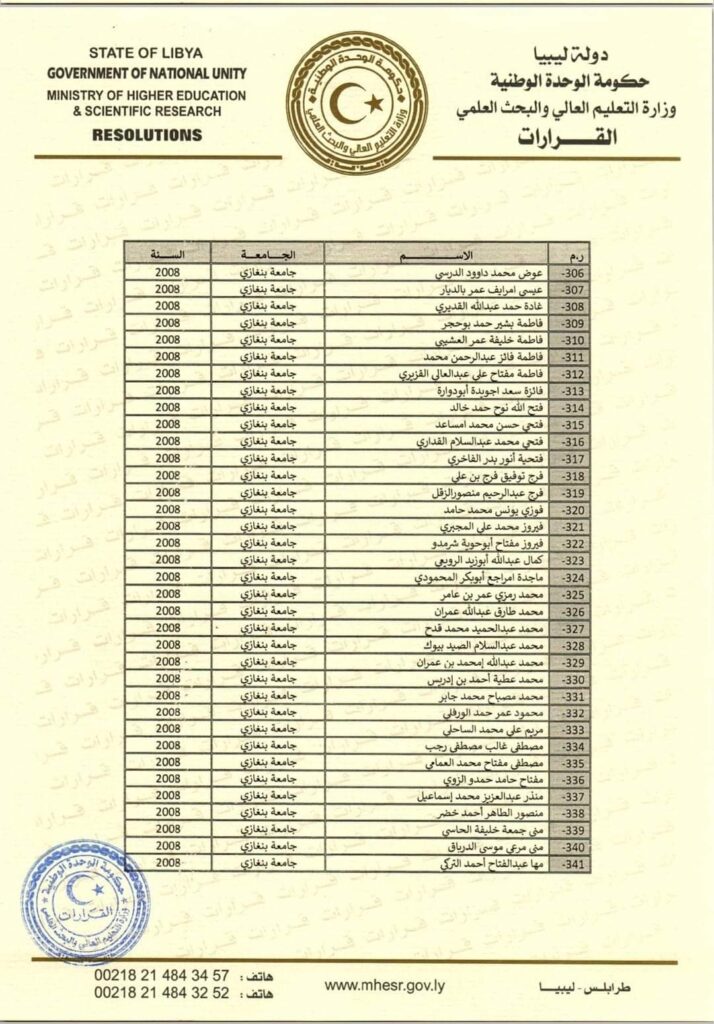 STATE OF LIBYA
GOVERNMENT OF NATIONAL UNITY
MINISTRY OF HIGHER EDUCATION
& SCIENTIFIC RESEARCH
RESOLUTIONS
حكومة الوحدة الوطنية
وزارة التعليم العالي والبحث العلمي
دولة ليبيا
حكومة الوحدة الوطنية
وزارة التعليم العالي والبحث العلمي
القــــرارات
ر.م الاســــم الجـامعـة السـنة
306- عوض محمد داوود الدرسي جامعة بنغازي 2008
307- عيسى امرايف عمر بالديار جامعة بنغازي 2008
308- غادة حمد عبدالله القديري جامعة بنغازي 2008
309- فاطمة بشير حمد بوحجر جامعة بنغازي 2008
310- فاطمة خليفة عمر العشيبي جامعة بنغازي 2008
311- فاطمة فائز عبدالرحمن محمد جامعة بنغازي 2008
312- فاطمة مفتاح علي عبدالعالي القزيري جامعة بنغازي 2008
313- فائزة سعد اجويدة أبودوارة جامعة بنغازي 2008
314- فتح الله نوح حمد خالد جامعة بنغازي 2008
315- فتحي حسن محمد امساعد جامعة بنغازي 2008
316- فتحي محمد عبدالسلام القداري جامعة بنغازي 2008
317- فتحية أنور بدر الفاخري جامعة بنغازي 2008
318- فرج توفيق فرج بن علي جامعة بنغازي 2008
319- فرج عبدالرحيم منصورالزقل جامعة بنغازي 2008
320- فوزي يونس محمد حامد جامعة بنغازي 2008
321- فيروز محمد علي المجبري جامعة بنغازي 2008
322- فيروز مفتاح أبوحوية شرمدو جامعة بنغازي 2008
323- كمال عبدالله أبوزيد الرويعي جامعة بنغازي 2008
324- ماجدة امراجع أبوبكر المحمودي جامعة بنغازي 2008
325- محمد رمزي عمر بن عامر جامعة بنغازي 2008
326- محمد طارق عبدالله عمران جامعة بنغازي 2008
327- محمد عبدالحميد محمد قدح جامعة بنغازي 2008
328- محمد عبدالسلام الصيد بيوك جامعة بنغازي 2008
329- محمد عبدالله إمحمد بن عمران جامعة بنغازي 2008
330- محمد عطية أحمد بن إدريس جامعة بنغازي 2008
331- محمد مصباح محمد جابر جامعة بنغازي 2008
332- محمود عمر حمد الورفلي جامعة بنغازي 2008
333- مريم علي محمد الساحلي جامعة بنغازي 2008
334- مصطفى غالب مصطفى رجب جامعة بنغازي 2008
335- مصطفى مفتاح محمد العمامي جامعة بنغازي 2008
336- مفتاح حامد حمدو الزوي جامعة بنغازي 2008
337- منذر عبدالعزيز محمد إسماعيل جامعة بنغازي 2008
338- منصور الطاهر أحمد خضر جامعة بنغازي 2008
339- منى جمعة خليفة الحاسي جامعة بنغازي 2008
340- منى مرعي موسى الدرباق جامعة بنغازي 2008
341- مها عبدالفتاح أحمد التركي جامعة بنغازي 2008
حكومة الوحدة الوطنية
القرارات
وزارة التعليم العالي والبحث العلمي
هاتف : 00218 21 484 34 57
هاتف : 00218 21 484 32 52
www.mhesr.gov.ly
طرابلس - ليبيـا